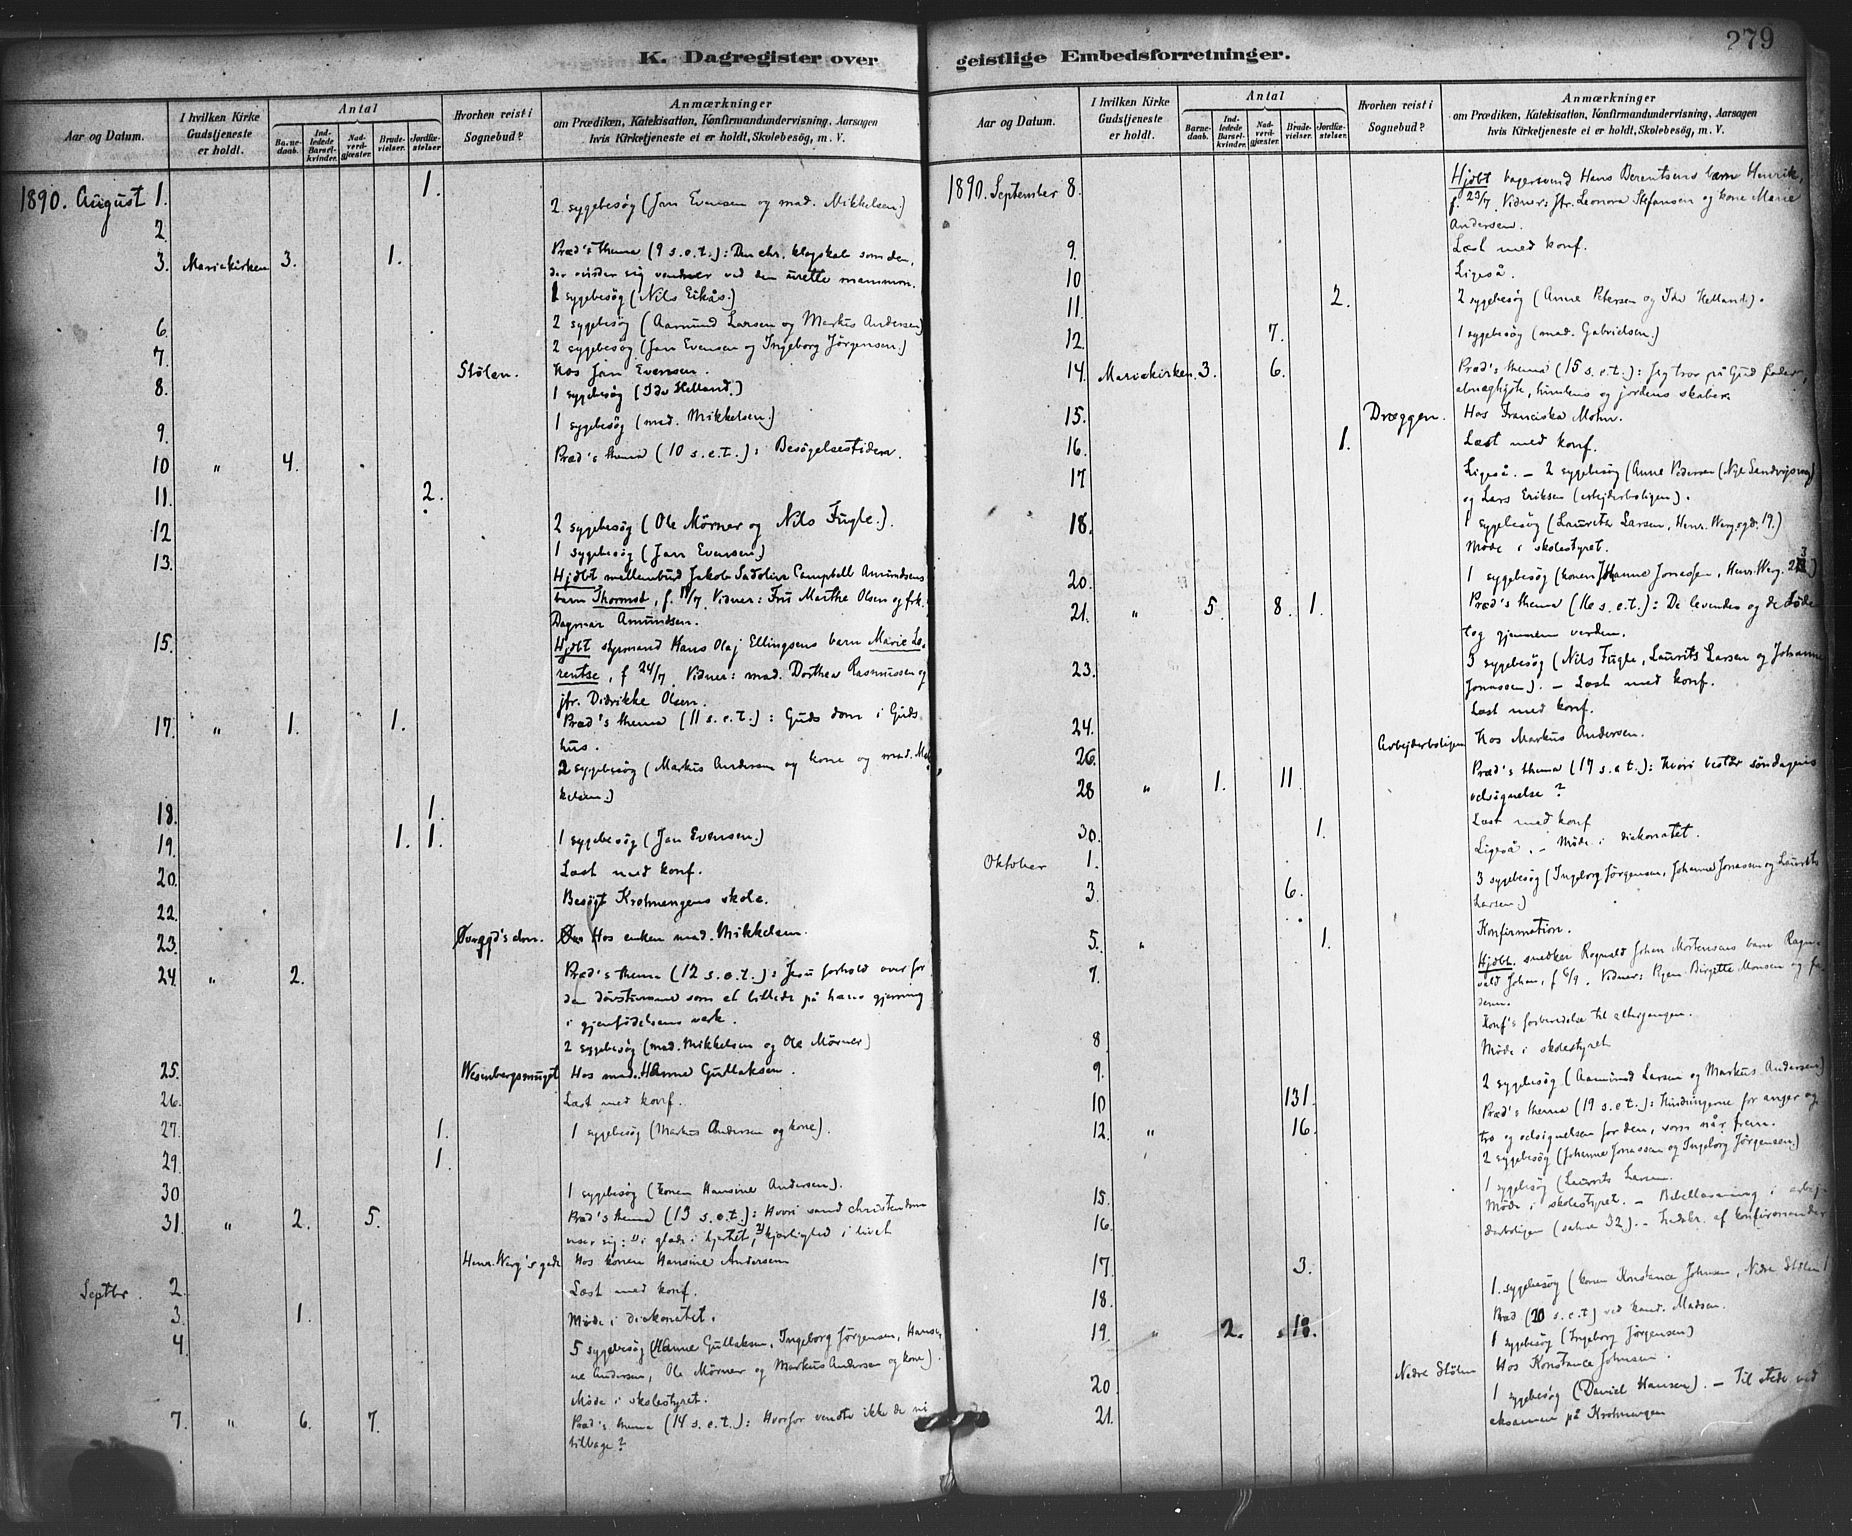 279
K. Dagregister over geistlige Embedsforretninger.
Aar og Datum. I hvilken Kirke Gudstjeneste er holdt. Antal Barnedaab. Indledede Barselkvinder. Nadverdgjæster. Brudevielser. Jordfæstelser. Hvorhen reist i Sognebud? Anmærkninger om Prædiken, Katekisation, Konfirmandundervisning, Aarsagen hvis Kirketjeneste ei er holdt, Skolebesøg, m. V.
1890. August 1. 1.
2. 2 sygebesøg (Jan Evensen og mad. Mikkelsen.)
3. Mariekirken 3. 1. Præd's thema (9 s. e. t.): Den chr. klogskab som den,
der vinder sig venner ved den urette mammon.
1 sygebesøg (Nils Eikås.)
6. 2 sygebesøg (Aamund Larsen og Markus Andersen)
7. 2 sygebesøg (Jan Evensen og Ingeborg Jørgensen.)
8. Stølen. Hos Jan Evensen.
1 sygebesøg (Ida Helland.)
9. 1 sygebesøg (mad. Mikkelsen.)
10 " 4. Præd's thema (10 s. e. t.): Besøgelsestiden.
11. 2.
12 2 sygebesøg (Ole Mørner og Nils Fugle.).
13. 1 sygebesøg (Jan Evensen.)
Hjdbt mellembud Jakob Campbell Amundsens
barn Thormod, f. /7. Vidner: Fru Marthe Olsen og frk.
Dagmar Amundsen.
15. Hjdbt styrmand Hans Olaj Ellingsens barn Marie Lo-
rentse, f 24/7. Vidner: mad. Dorthea Rasmussen og
jfr. Didrikke Olsen.
17. " 1. 1. Præd's thema (11 s. e. t.): Guds dom i Guds
hus.
2 sygebesøg (Markus Andersen og kone og mad. Mik-
kelsen.)
18. 1.
19. 1. 1. 1 sygebesøg (Jan Evensen.)
20. Læst med konf.
22. Besøgt Krohnengens skole.
23. Hos enken mad. Mikkelsen.
24. " 2. Præd's thema (12 s. e. t.): Jesu forhold over for
den døvstumme som et billede på hans gjerning
i gjenfødelsens verk.
2 sygebesøg (mad. Mikkelsen og Ole Mørner)
25. Wesenbergsmuget Hos mad. Hanne Gullaksen.
26. Læst med konf.
27. 1. 1 sygebesøg (Markus Andersen og kone).
29. 1.
30 1 sygebesøg (konen Hansine Andersen).
31. " 2. 5. Præd's thema (13 s. e. t.): Hvori sand christendom
viser sig: 1) i glæde i hjertet, 2) kjærlighed i livet
Henr. Werg's gade Hos konen Hansine Andersen
Septbr. 2. Læst med konf.
3. 1. Møde i diakonatet.
4 5 sygebesøg (Hanne Gullaksen, Ingeborg Jørgensen, Hansi-
ne Andersen, Ole Mørner og Markus Andersen og kone).
Møde i skolestyret.
7. " 6. 7. Præd's thema (14 s. e. t.): Hvorfor vendte ikke de ni
tilbage?
Aar og Datum. I hvilken Kirke Gudstjeneste er holdt. Antal Barnedaab. Indledede Barselkvinder. Nadverdgjæster. Brudevielser. Jordfæstelser. Hvorhen reist i Sognebud? Anmærkninger om Prædiken, Katekisation, Konfirmandundervisning, Aarsagen hvis Kirketjeneste ei er holdt, Skolebesøg, m. V.
1890. September 8. Hjdbt bagersvend Hans Berentsens barn Henrik,
f. 23/7. Vidner: jfr. Leonora Stefansen og kone Marie
Andersen.
9. Læst med konf.
10 Ligeså.
11. 2. 2 sygebesøg (Anne Petersen og Ida Helland.).
12. 7. 1 sygebesøg (mad. Gabrielsen.)
14. Mariekirken. 3. 6. Præd's thema (15 s. e. t.): Jeg tror på Gud fader,
almægtigste, himlens og jordens skaber.
15. Dræggen. Hos Franciska Mohn.
16. 1. Læst med konf.
17 Ligeså. – 2 sygebesøg (Anne Pedersen
og Lars Eriksen (arbejderboligen).
18. 1 sygebesøg (Laurits Larsen, Henr. Werg.sgd. 19.)
Møde i skolestyret.
20. 1 sygebesøg (konen Johanne Jonassen, Henr. Werg.
21. " 5. 8. 1. Præd's thema (16 s. e. t.): De levendes og de dødes
tog gjennem verden.
23. 3 sygebesøg (Nils Fugle, Laurits Larsen og Johanne
Jonassen). – Læst med konf.
24. Læst med konf.
26. Arbejderboligen Hos Markus Andersen.
28 " 1. 11. Præd's thema (17 s. e. t.): Hvori består søndagens
velsignelse?
30. 1. Læst med konf
Oktober 1. Ligeså. – Møde i diakonatet.
3. 6. 3 sygebesøg (Ingeborg Jørgensen, Johanne Jonassen og Laurits
Larsen.)
5. " 1. Konfirmation.
7. Hjdbt. snedker Ragnvald Johan Mortensens barn Ragn-
vald Johan, f 6/9. Vidner: Birgitte Monsen og fa-
deren.
8. Konf's forberedelse til altergangen.
9. Møde i skolestyret
10 131. 2 sygebesøg (Aamund Larsen og Markus Andersen)
12. " 16. Præd's thema (19 s. e. t.): Hindringerne for anger og
tro og velsignelsen for den, som når frem.
2 sygebesøg (Johanne Jonassen og Ingeborg Jørgensen.)
15. 1 sygebesøg (Laurits Larsen.
16. Møde i skolestyret. – Bibellæsning i arbej-
derboligen (salme 32). – Indskr. af konfirmander
17. 3.
18. 1. sygebesøg (konen Konstance Johnsen, Nedre Stølen)
19. " 2. 18. Præd (20 s. e. t) ved kand. Madsen.
1 sygebesøg (Ingeborg Jørgensen)
20 Nedre Stølen Hos Konstance Johnsen.
21. 1 sygebesøg (Daniel Hansen). – Til stede ved
eksamen på Krohnengen